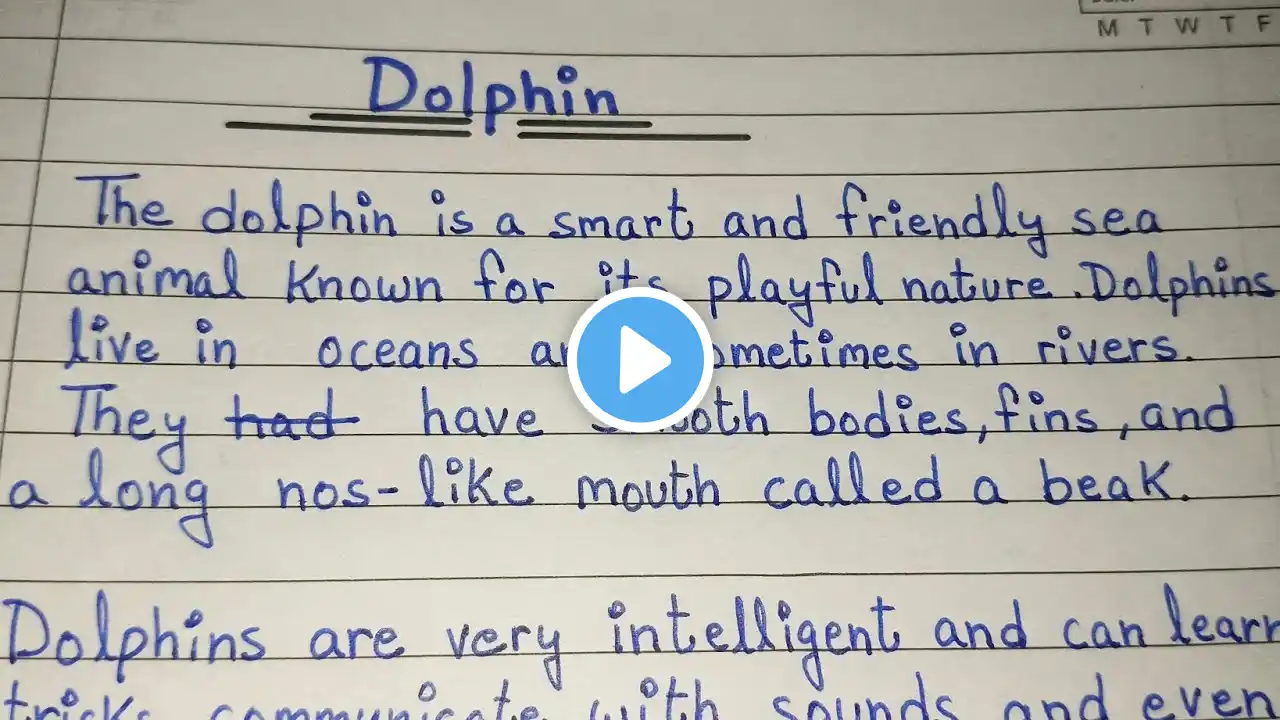 M T W T F
Dolphin
The dolphin is a smart and friendly sea
animal known for its playful nature. Dolphins
live in oceans sometimes in rivers.
They had have smooth bodies, fins, and
a long nos-like mouth called a beak.
Dolphins are very intelligent and can learn
tricks communicate with sounds and even